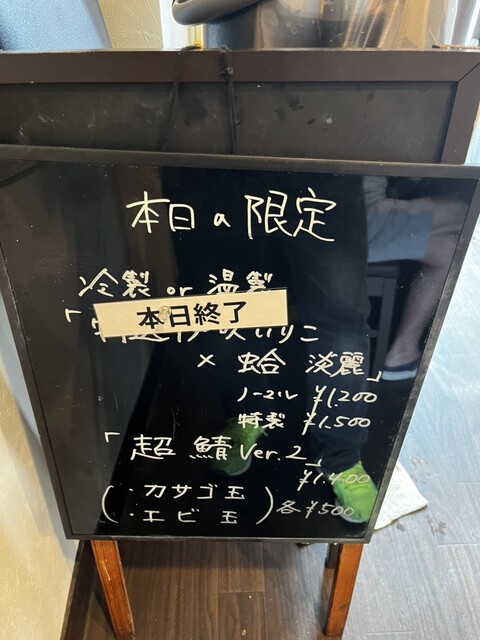 本日の限定
冷製 or 温製
本日終了
いりこ
× 蛤 淡麗」
ノーマル ¥1,200
特製 ¥1,500
「超鯖 Ver.2」
¥1,400
(・カサゴ玉
・エビ玉) 各¥500